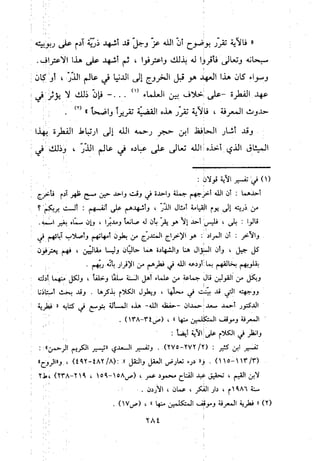 « فالآية تقرّر بوضوح أنّ الله عزّ وجلّ قد أشهد ذرّيّة آدم على ربوبيته
سبحانه وتعالى وأقرّوا لله بذلك واعترفوا ، ثم أشهد على هذا الاعتراف.
وسواء كان هذا العهد هو قبل الخروج إلى الدنيا في عالم الذّرّ ، أو كان
عهد الفطرة -على خلاف بين العلماء (١) ...- فإنّ ذلك لا يؤثر في
حدوث المعرفة ، فالآية تقرّر هذه القضية تقريراً واضحاً » (٢) .
وقد أشار الحافظ ابن حجر رحمه الله إلى ارتباط الفطرة بهذا
الميثاق الذي أخذه الله تعالى على عباده في عالم الذّرّ ، وذلك في
(١) في تفسير الآية قولان :
أحدهما : أن الله أخرجهم جملة واحدة في وقت واحد حين مسح ظهر آدم فأخرج
منه ذريته إلى يوم القيامة أمثال الذّرّ ، وأشهدهم على أنفسهم : ألست بربكم ؟
قالوا : بلى ، فليس أحد إلّا وهو يقرّ بأن له صانعاً ومدبراً ، وإن سماه بغير اسمه.
والآخر : أن المراد هو الإخراج المتدرج من بطون أمهاتهم وأصلاب آبائهم في
كل جيل ، وأن السؤال هنا والشهادة هما بلسان الحال وليسا بالمقال ، فهم يعترفون
بقلوبهم بخالقهم بما أودعه الله في فطرهم من الإقرار بربهم .
ولكل من القولين قال جماعة من علماء أهل السنة سلفاً وخلفاً ، ولكل منهما أدلته
والتوجيه الذي قد بينت في محلّها ، ويطول الكلام بذكرها . وقد بحث أستاذنا
الدكتور أحمد سعد حمدان -حفظه الله- هذه المسألة بتوسع في كتابه « نظرية
المعرفة وموقف المتكلمين منها » ، (ص٣٤-١٣٨) .
وانظر في الكلام على الآية أيضاً :
تفسير ابن كثير : (٢/٢٧٢-٢٧٥) . وتفسير السعدي «تيسير الكريم الرحمن» :
(٣/١١٣-١١٥) . و« درء تعارض العقل والنقل » : (٨/٤٨٢-٤٩٢) ، و«الروح»
لابن القيم ، تحقيق عبد الفتاح محمود عمر ، (ص١٥٨-١٥٩ ، ٢١٩-٢٣٨) ، ط٢
سنة ١٩٨٦م ، دار الفكر ، عمان ، الأردن .
(٢) « نظرية المعرفة وموقف المتكلمين منها » ، (ص١٧) .
٢٨٤